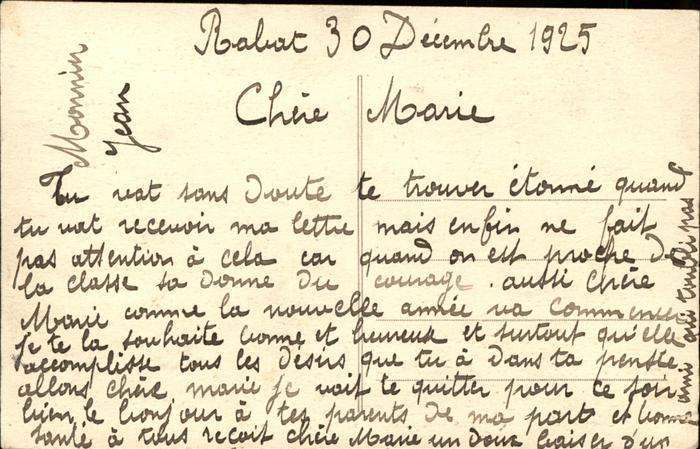 Rabat 30 Décembre 1925
Monnin
Jean
Chère Marie
Tu vat sans doute te trouver étonné quand
tu vat recevoir ma lettre mais enfin ne fait
pas attention à cela car quand on est proche de
la classe sa donne du courage . aussi Chère
Marie comme la nouvelle année va commencer
je te la souhaite bonne et heureuse et surtout qu'elle
accomplisse tous les désirs que tu à dans ta pensée
allons chère marie je vait te quitter pour ce soir
bien le bonjour à tes parents de ma part et bonne
santé à tous reçoit chère Marie un doux baiser d'un
ami qui t'oubli pas